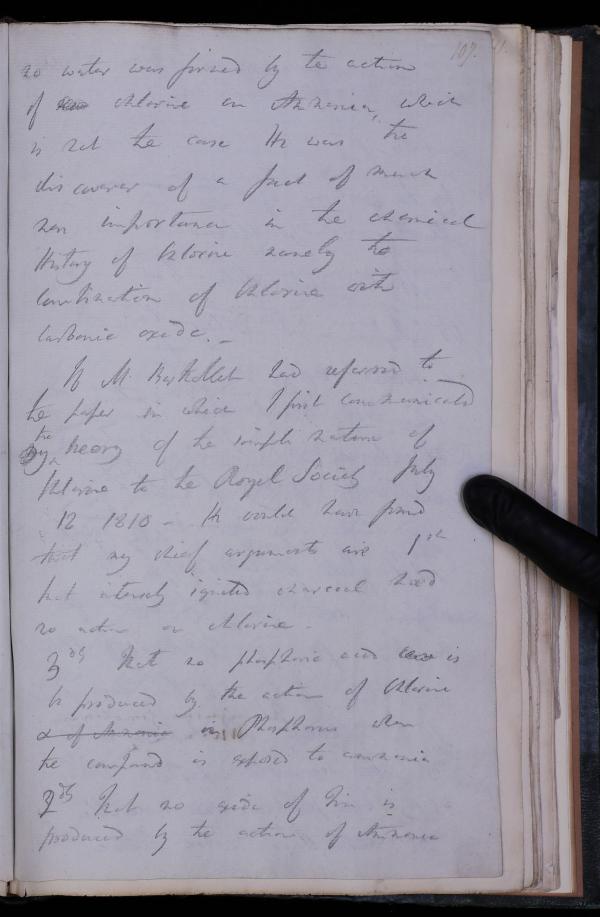 107.
no water was formed by the action
of chlorine on Ammonia, which
is not the case He was the
discoverer of a fact of much
more importance in the chemical
History of Chlorine namely the
Combination of Chlorine with
Carbonic oxide. _
If M. Berthollet had referred to
the paper in which I first communicated
the theory of the simple nature of
Chlorine to the Royal Society July
12 1810 - He would have found
that my chief arguments are 1st
that intensely ignited charcoal had
no action on chlorine -
that no phosphoric acid is
to produced by the action of Chlorine
& of Ammonia on Phosphorus when
the compound is exposed to ammonia
that no oxide of Tin is
produced by the action of Ammonia